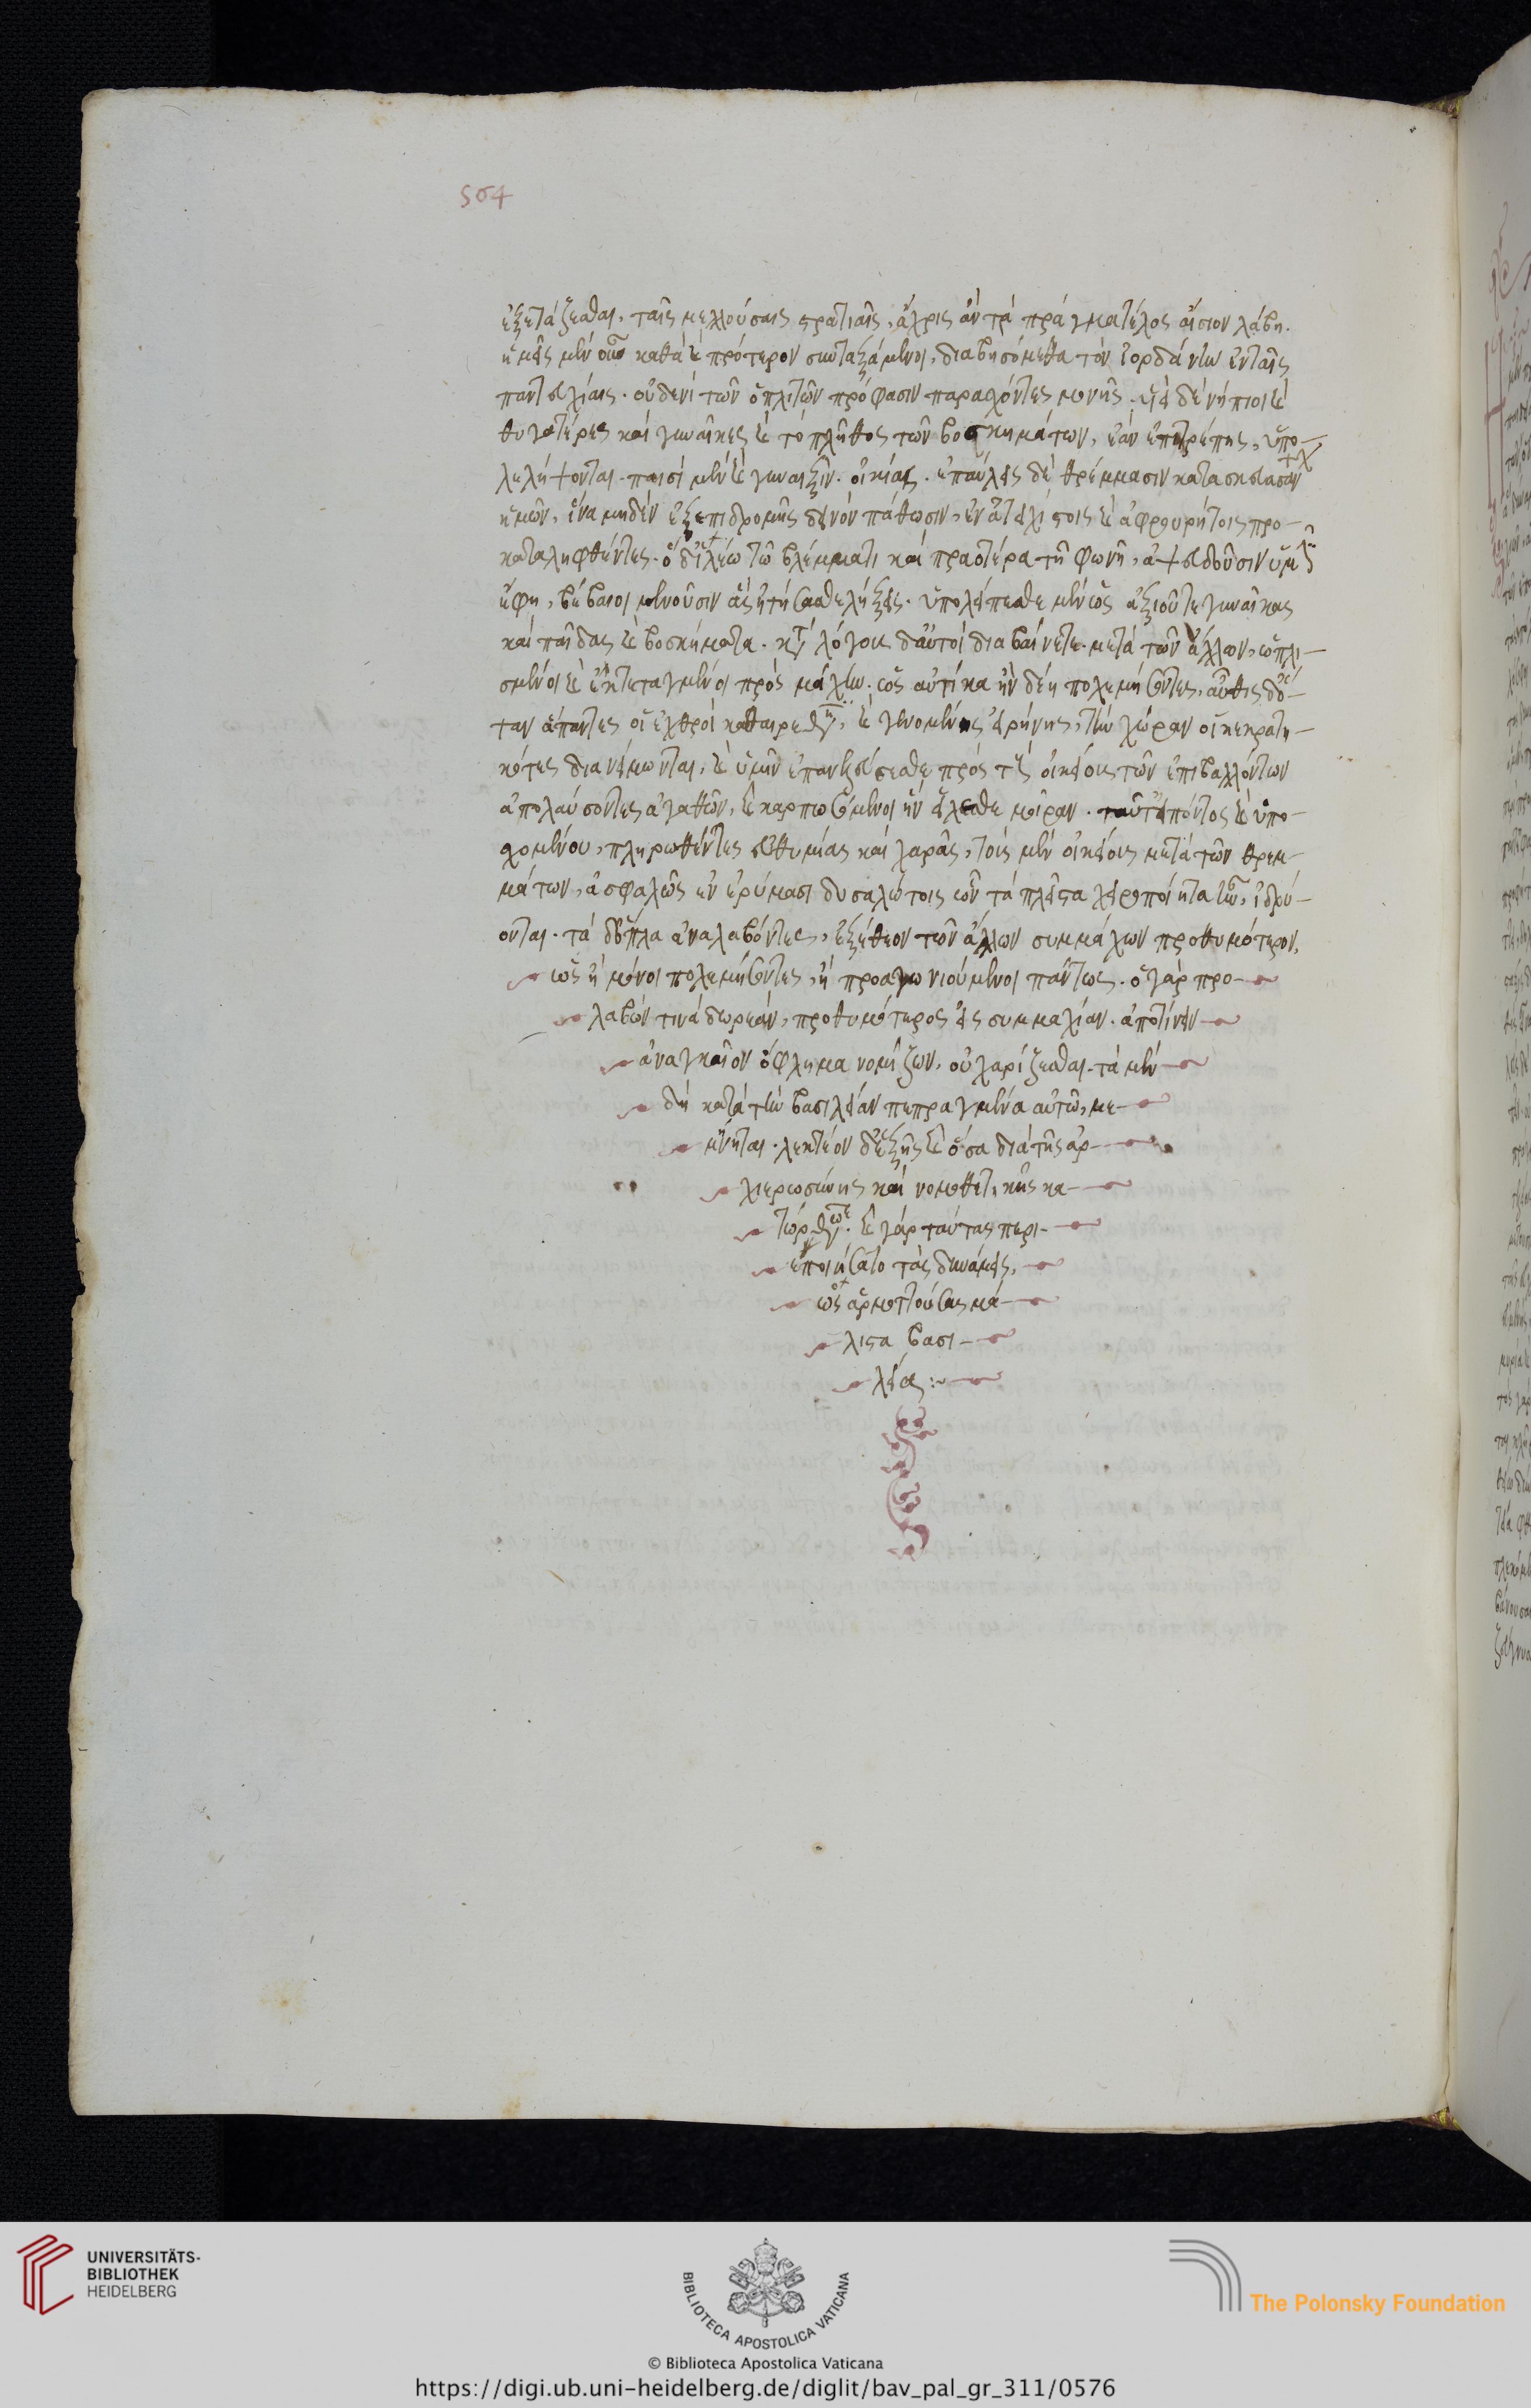 564
ἐξετάζεσθαι, ταῖς μελλούσαις στρατιαῖς, ἄχρις ἂν τὰ πράγματα τέλος αἴσιον λάβῃ.
ἡμεῖς μὲν οὖν καθὰ καὶ πρότερον συνταξάμενοι, διαβησόμεθα τὸν ἰορδάνην ἐν ταῖς
παντευχίαις. οὐδενὶ τῶν ὁπλιτῶν πρόφασιν παρασχόντες μονῆς. υἱεῖ δὲ νήπιοι καὶ
θυγατέρες καὶ γυναῖκες καὶ τὸ πλῆθος τῶν βοσκημάτων, ἐὰν ἐπιτρέπῃς, ὑπο-
λελήψονται. παισὶ μὲν καὶ γυναιξὶν οἰκίας. ἐπαύλεις δὲ θρέμμασιν κατασκευασάντων
ἡμῶν, ἵνα μηδὲν ἐξ ἐπιδρομῆς δεινὸν πάθωσιν, ἐν ἀτειχίστοις καὶ ἀφρουρήτοις προ-
καταληφθέντες. ὁ δ' ἵλεῳ τῷ βλέμματι καὶ πραοτέρᾳ τῇ φωνῇ, ἀψευδοῦσιν ὑμῖν
ἔφη, βέβαιοι μενοῦσιν ἃς ᾐτήσασθε λήξεις. ὑπολείπεσθε μὲν ὡς ἀξιοῦτε γυναῖκας
καὶ παῖδας καὶ βοσκήματα. κατὰ λόχους δ' αὐτοὶ διαβαίνετε μετὰ τῶν ἄλλων, ὡπλι-
σμένοι καὶ ἐκτεταγμένοι πρὸς μάχην. ὡς αὐτίκα ἢν δέῃ πολεμήσοντες, αὖθις δ' ὅ-
ταν ἅπαντες οἱ ἐχθροὶ καθαιρεθῶσιν, καὶ γενομένης εἰρήνης, τὴν χώραν οἱ κεκρατη-
κότες διανείμωνται, καὶ ὑμῖν ἐπανελεύσεσθε πρὸς τοὺς οἰκείους τῶν ἐπιβαλλόντων
ἀπολαύσοντες ἀγαθῶν, καὶ καρπωσόμενοι ἣν εἵλεσθε μοῖραν. ταῦτ' εἰπόντος καὶ ὑπο-
σχομένου, πληρωθέντες εὐθυμίας καὶ χαρᾶς, τοὺς μὲν οἰκείους μετὰ τῶν θρεμ-
μάτων, ἀσφαλῶς ἐν ἐρύμασι δυσαλώτοις ὧν τὰ πλεῖστα χειροποίητα ἦν, ἱδρύ-
ονται. τὰ δ' ὅπλα ἀναλαβόντες, ἐξέθεον τῶν ἄλλων συμμάχων προθυμότερον,
ὡς ἢ μόνοι πολεμήσοντες, ἢ προαγωνιούμενοι πάντως. ὁ γὰρ προ-
λαβών τινα δωρεάν, προθυμότερος εἰς συμμαχίαν. ἀποτίνειν
ἀναγκαῖον ὄφλημα νομίζων, οὐ χαρίζεσθαι. τὰ μὲν
δὴ κατὰ τὴν βασιλείαν πεπραγμένα αὐτῷ, με-
μήνυται. λεκτέον δ' ἑξῆς καὶ ὅσα διὰ τῆς ἀρ-
χιερωσύνης καὶ νομοθετικῆς κα-
τώρθωσε. καὶ γὰρ ταύτας περι-
εποιήσατο τὰς δυνάμεις,
ὡς ἁρμοττούσας μά-
λιστα βασι-
λείᾳ:~
UNIVERSITÄTS-
BIBLIOTHEK
HEIDELBERG
BIBLIOTECA APOSTOLICA VATICANA
The Polonsky Foundation
© Biblioteca Apostolica Vaticana
https://digi.ub.uni-heidelberg.de/diglit/bav_pal_gr_311/0576